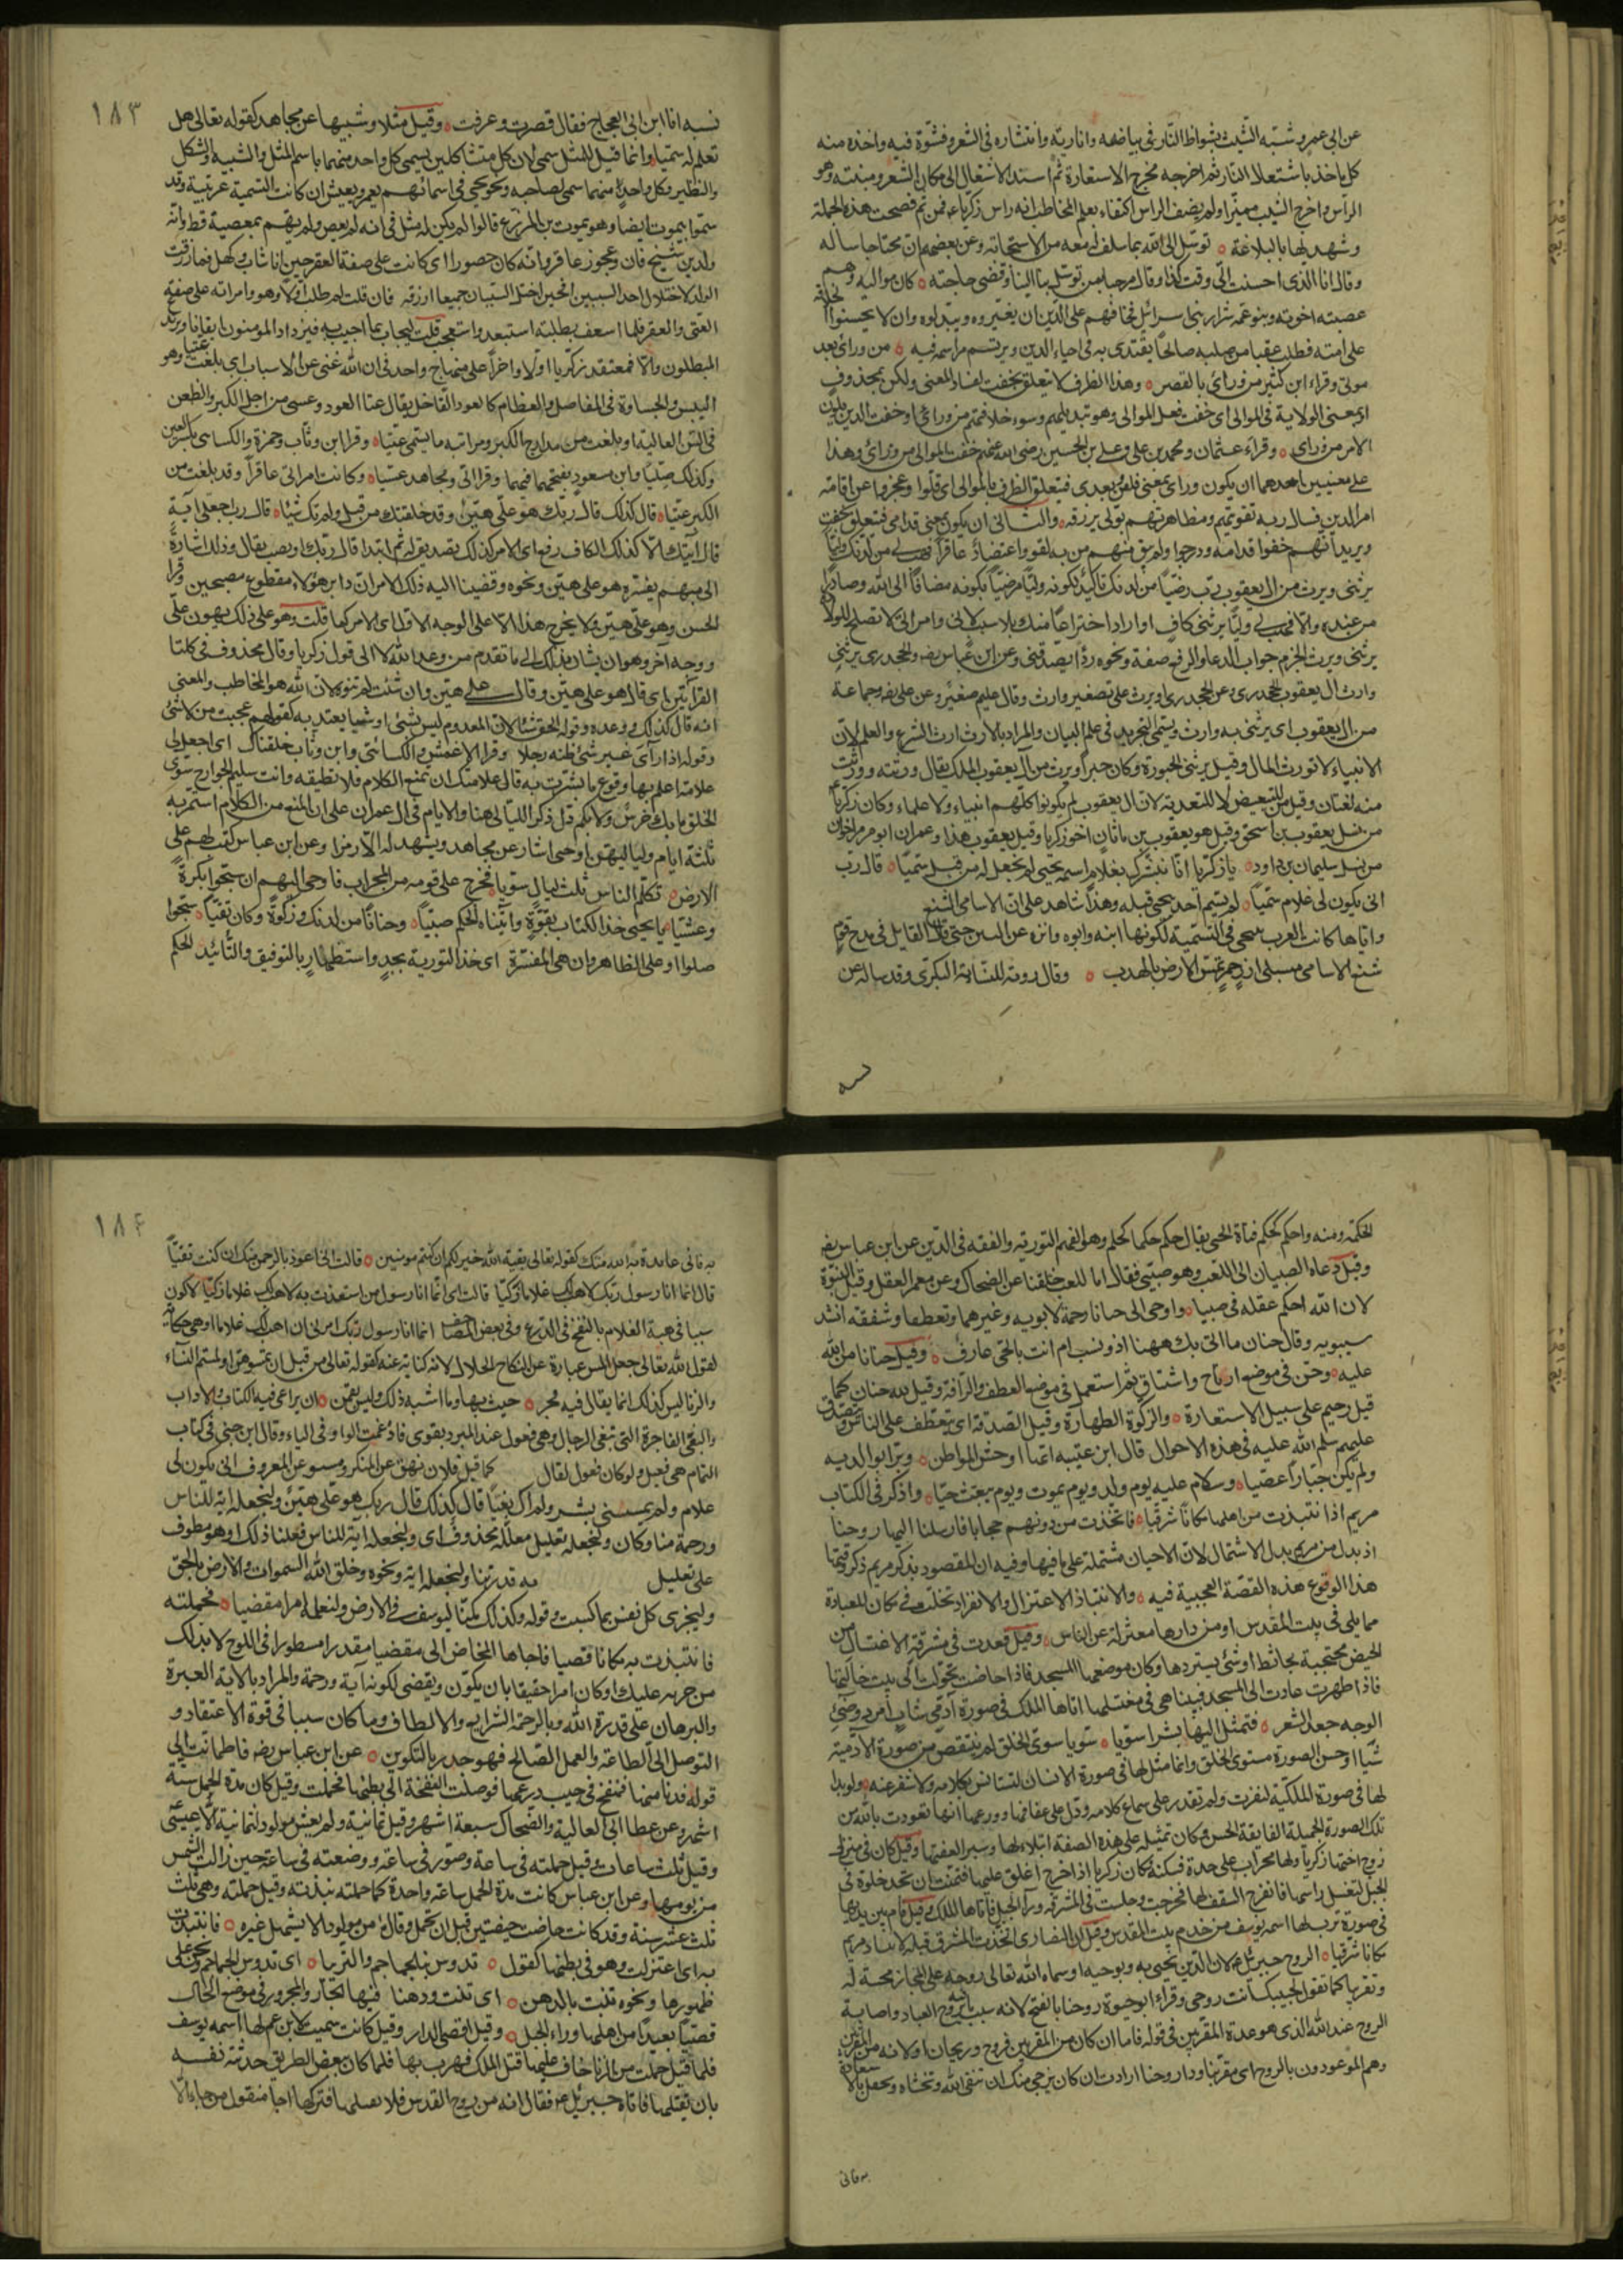 عن ابى عمرو شبّه الشيب بشواظ النار فى بياضه وانارته وانتشاره فى الشعر وفشوّه فيه واخذه منه
كل ماخذ باشتعال النار ثم اخرجه مخرج الاستعارة ثم اسند الاشتغال الى مكان الشعر ومنبته وهو
الرأس واخرج الشيب مميّزا ولم يضف الراس اكتفاء بعلم المخاطب انه راس زكريا فمن ثم فصحت هذه الجملة
وشهد لها بالبلاغة توسّل الى الله بما سلف له معه من الاستجابة وعن بعضهم ان محتاجا ساله
وقال انا الذى احسنت الىّ وقت كذا وقال مرحبا بمن توسّل بنا الينا وقضى حاجته كان مواليه وهم
عصبته اخوته وبنو عمه شرار بنى اسرائل فخافهم على الدين ان يغيروه ويبدلوه وان لا يحسنوا الخلافة
على امته فطلب عقبا من صلبه صالحا يقتدى به فى احياء الدين ويرتسم مراسمه فيه من ورائى بعد
موتى وقراء ابن كثير من وراىَ بالقصر وهذا الظرف لا يتعلق بخفت لفساد المعنى ولكن بمحذوف
او بمعنى الولاية فى الموالى اى خفت فعل الموالى وهو تبديلهم وسوء خلافتهم من ورائى او خفت الذين يلون
الامر من وراى وقراء عثمان ومحمد بن على وعلى بن الحسين رضى الله عنهم خفت الموالى من ورائى وهذا
على معنيين احدهما ان يكون وراى بمعنى خلفى وبعدى فيتعلق الظرف بالموالى اى قلّوا وعجزوا عن اقامة
امر الدين فسال ربه تقويتهم ومظاهرتهم بولى يرزقه والثانى ان يكون بمعنى قدامى فيتعلق بخفت
ويريد انهم خفوا قدامه ودرجوا ولم يبق منهم من به تقو واعتضاد عاقراً فهب لى من لدنك وليّا
يرثنى ويرث من ال يعقوب رب رضيّا من لدنك تاكيد لكونه وليّا مرضيّا بكونه مضافا الى الله وصادراً
من عنده والا فهب لى وليّا يرثنى كاف او اراد اختراعا منك بلا سبب لانى وامراتى لا تصلح للولادة
يرثنى ويرث الجزم جواب الدعا والرفع صفة ونحوه ردأ يصدقنى وعن ابن عباس رضه والجحدرى يرثنى
وارث ال يعقوب الجحدرى وعن الجحدرى اويرث على تصغير وارث وقال غليم صغير وعن على رضه وجماعة
من ال يعقوب اى يرثنى به وارث ويسمى التجريد فى علم البيان والمراد بالارث ارث الشرع والعلم لان
الانبياء لا تورث المال وقيل يرثنى الحبورة وكان حبرا ويرث من آل يعقوب الملك يقال ورثته وورثت
منه لغتان وقيل من للتبعيض لا للتعدية لان ال يعقوب لم يكونوا كلهم انبياء ولا علماء وكان زكريا
من نسل يعقوب بن اسحق وقيل هو يعقوب بن ماثان اخو زكريا وقيل يعقوب هذا وعمران ابو مريم اخوان
من نسل سليمان بن داود يا زكريا انّا نبشّرك بغلام اسمه يحيى لم نجعل له من قبل سميّا قال رب
انى يكون لى غلام سميّا لم يتسم أحد بيحيى قبله وهذا شاهد على ان الاسامى الشنع
واياها كانت العرب تنحى فى التسمية لكونها انبه وانوه وانزه عن النبز حتى قال القايل فى مدح قوم
شنع الاسامى مسبلى ازر حمر تمس الارض بالهدب وقال روبة للنسابة البكرى وقد ساله عن
نسبه

١٨٣
نسبه انا ابن العجاج فقال قصرت وعرفت وقيل مثلا وشبيها عن مجاهد كقوله تعالى هل
تعلم له سميّا وانما قيل للمثل سمى لان كل متشاكلين يسمى كل واحد منهما باسم المثل والشبيه والشكل
والنظير وكل واحد منهما سمى لصاحبه ونحو يحيى فى اسمائهم يعمر ويعيش ان كانت التسمية عربية وقد
سمّوا بيموت ايضا وهو يموت بن المزرع قالوا لم يكن له مثل فى انه لم يعص ولم يهم بمعصية قط وانه
ولد بين شيخ فان وعجوز عاقر وانه كان حصورا اى كانت على صفة العقر حين انا شاب وكهل فما رزقت
الولد لاختلال احد السببين افحين اختل السببان جميعا ارزقه فان قلت لم طلب اولا وهو وامراته على صفة
العتى والعقر فلما اسعف بطلبته استبعد واستعجب قلت ليجاب بما اجيب به فيزداد المومنون ايقانا ويرتدع
المبطلون والا فمعتقد زكريا اولا واخراً على منهاج واحد فى ان الله غنى عن الاسباب اى بلغت عتيا وهو
اليبس والجساوة فى المفاصل والعظام كالعود القاحل يقال عتا العود وعسى من اجل الكبر والطعن
فى السن العالية او بلغت من مدارج الكبر ومراتبه ما يسمى عتيّا وقرا ابن وثاب وحمزة والكساى بكسر العين
وكذلك صليّا وابن مسعود بفتحهما فيهما وقرا ابى ومجاهد عسيّا وكانت امراتى عاقراً وقد بلغت من
الكبر عتيّا قال كذلك قال ربك هو علىّ هيّن وقد خلقتك من قبل ولم تك شيئا قال رب اجعل لى آية
قال آيتك الّا كذلك الكاف رفع اى الامر كذلك تصديق له ثم ابتدا قال ربك او نصب بقال وذلك اشارة
الى مبهم يفسّره هو على هيّن ونحوه وقضينا اليه ذلك الامر ان دابر هؤلاء مقطوع مصبحين وقرا
الحسن وهو علىّ هيّن ولا يخرج هذا الا على الوجه الاول اى الامر كما قلت وهو على ذلك يهون علىّ
ووجه آخر وهو ان يشار بذلك الى ما تقدم من وعد الله لا الى قول زكريا وقال محذوف فى كلتا
القرأتين اى قال هو على هيّن وقال على هيّن وان شئت لم تنوه لان الله هو المخاطب والمعنى
انه قال كذلك ووعده وقوله الحق شئا لان المعدوم ليس بشئى او شيا يعتد به كقولهم عجبت من لا شئى
وقوله اذا رآى غير شئ ظنه رجلا وقرا الاعمش والكسائى وابن وثاب خلقناك اى اجعل لى
علامة اعلم بها وقوع ما بشرت به قال علامتك ان تمنع الكلام فلا تطيقه وانت سليم الجوارح سوى
الخلق ما بك خرس ولا بكم دل ذكر الليالى هنا والايام فى ال عمران على ان المنع من الكلام استمر به
ثلثة ايام ولياليهن اوحى اشار عن مجاهد ويشهد له الّا رمزا وعن ابن عباس كتب لهم على
الارض تكلّم الناس ثلث ليال سويا فخرج على قومه من المحراب فاوحى اليهم ان سبّحوا بكرةً
وعشيّا يا يحيى خذ الكتاب بقوّة وآتيناه الحكم صبيّا وحنانا من لدنك وزكوة وكان تقيّا سبّحوا
صلوا او على الظاهر وان هى المفسّرة اى خذ التورية بجدٍ واستظهارٍ بالتوفيق والتأئيد لحكم

الحكمة ومنه واحكم كحكم فتاة الحى يقال حكم حكما كحلم وهو الفهم التورية والفقه فى الدين عن ابن عباس رضه
وقيل دعاه الصبيان الى اللعب وهو صبى فقال اما للعب خلقنا عن الضحاك وعن معمر العقل وقيل النبوّة
لان الله احكم عقله فى صبيا واوحى الى حنانا رحمة لابويه وغيرهما وتعطفا وشفقة انشد
سيبويه وقال حنان ما اتى بك ههنا اذو نسب ام انت بالحى عارف وقيل حنانا من الله
عليه وحن فى موضع ارتاح واشتاق ثم استعمل فى موضع العطف والرأفة وقيل لله حنان كما
قيل رحيم على سبيل الاستعارة والزكوة الطهارة وقيل الصدقة اى يتعطف على الناس ويتصدق
عليهم سلم الله عليه فى هذه الاحوال قال ابن عيينة انها اوحش المواطن وبرّا بوالديه
ولم يكن جبّاراً عصيّا وسلام عليه يوم ولد ويوم يموت ويوم يبعث حيّا واذكر فى الكتاب
مريم اذ انتبذت من اهلها مكانا شرقيّا فاتّخذت من دونهم حجابا فارسلنا اليها روحنا
اذ بدل من مريم بدل الاشتمال لان الاحيان مشتملة على ما فيها وفيه ان المقصود بذكر مريم ذكر وقتها
هذا لوقوع هذه القصّة العجيبة فيه والانتباذ الاعتزال والانفراد تخلت فى مكان للعبادة
مما يلى فى بيت المقدس او من دارها معتزلة عن الناس وقيل قعدت فى مشرقة الاغتسال من
الحيض محتجبة بحائط او شئى يسترها وكان موضعها المسجد فاذا حاضت تحولت الى بيت خالتها
فاذا طهرت عادت الى المسجد فبيناهى فى مغتسلها اتاها الملك فى صورة آدمى شاب امرد وضئ
الوجه جعد الشعر فتمثل اليها بشرا سويا سويا سوى الخلق لم ينتقص من صورة الآدمية
شيّا او حسن الصورة مستوى الخلق وانما مثل لها فى صورة الانسان لتستانس بكلامه ولا تنفر عنه ولو بدا
لها فى صورة الملكيّة لنفرت ولم تقدر على سماع كلامه ودل على عفافها وورعها انها تعوذت بالله من
تلك الصورة الجميلة الفايقة الحسن وكان تمثيله على هذه الصفة ابتلاء لها وسبر العفتها وقيل كان فى منزل
زوج اختها زكريا ولها محراب على حدة تسكنه وكان زكريا اذا خرج اغلق عليها فتمنت ان تجد خلوة فى
الجبل لتغسل راسها فانفرج السقف لها فخرجت وجلست فى المشرقة ورآ الجبل فاتاها الملك وقيل قام بين يديها
فى صورة ترب لها اسمه يوسف من خدم بيت المقدس وقيل ان النصارى اتخذت المشرق قبلة لانتباد مريم
مكانا شرقيا الروح جبرئيل لان الدين تحيى به وبوحيه او سماه الله تعالى روحه على المجاز محبة له
وتقريبا كما تقول لحبيبك انت روحى وقراء ابو حيوة روحنا بالفتح لانه سبب لما فيه روح العباد واصابة
الروح عند الله الذى هو عدة المقربين فى قوله فاما ان كان من المقربين فروح وريحان او لانه من المقربين
وهم الموعودون بالروح اى مقربنا وذا روحنا ارادت ان كان يرجى منك ان تتقى الله وتخشاه وتحفل بالاستعاذة
به فانى

١٨٤
به فانى عائدة به منك كقوله تعالى بقية الله خير لكم ان كنتم مومنين قالت انى اعوذ بالرحمن منك ان كنت تقيّاً
قال انما انا رسول ربك لاهب لك غلاما زكيّا قالت اى انما انا رسول من استعذت به لاهب لك غلاما زكيّا لاكون
سببا فى هبة الغلام بالنفخ فى الدرع وفى بعض المصاحف انما انا رسول ربك امرنى ان اهب لك غلاما او هى حكاية
لقول الله تعالى جعل المس عبارة عن النكاح الحلال لانه كناية عنه كقوله تعالى من قبل ان تمسوهن او لمستم النساء
والزنا ليس كذلك انما يقال فيه فجر خبث بها وما اشبه ذلك وليس بقمن ان يراعى فيه الكنايات والاداب
والبغى الفاجرة التى تبغى الرجال وهى فعول عند المبرد بغوى فادغمت الواو فى الياء وقال ابن جنى فى كتاب
التمام هى فعيل ولو كان فعول لقال كما قيل فلان نهو عن المنكر انى يكون لى
غلام ولم يمسسنى بشر ولم اك بغيّا قال كذلك قال ربك هو علىّ هيّن ولنجعله اية للناس
ورحمة منا وكان ولنجعله تعليل معلله محذوف اى ولنجعله آية للناس فعلنا ذلك او هو معطوف
على تعليل به قدرتنا ولنجعله اية ونحوه وخلق الله السموات والارض بالحق
ولتجزى كل نفس بما كسبت وقوله وكذلك مكّنا ليوسف فى الارض ولنعلمه امرا مقضيا فحملته
فانتبذت به مكانا قصيا فاجاها المخاض الى مقضيا مقدرا مسطورا فى اللوح لا بد لك
من جريه عليك او كان امرا حقيقا بان يكون ويقضى لكونه آية ورحمة والمراد بالاية العبرة
والبرهان على قدرة الله وبالرحمة الشرايع والالطاف وما كان سببا فى قوة الاعتقاد و
التوصل الى الطاعة والعمل الصالح فهو جدير بالتكوين عن ابن عباس رضه فاطمانت الى
قوله فدنا منها فنفخ فى جيب درعها فوصلت النفخة الى بطنها فحملت وقيل كان مدة الحمل ستة
اشهر وعن عطا ابى العالية والضحاك سبعة اشهر وقيل ثمانية ولم يعش مولود لثمانية الا عيسى
وقيل ثلث ساعات وقيل حملته فى ساعة وصور فى ساعة ووضعته فى ساعة حين زالت الشمس
من يومها وعن ابن عباس كانت مدة الحمل ساعة واحدة كما حملته نبذته وقيل حملته وهى بنت
ثلث عشر سنة وقد كانت حاضت حيضتين قبل ان تحمل وقالوا من مولود الا يستهل غيره فانتبذت
به اى اعتزلت وهو فى بطنها كقول تدوس بنا الجماجم والتريبا اى تدوس الجماجم ونحن على
ظهورها ونحوه تنبت بالدهن اى تنبت ودهنا فيها الجار والمجرور فى موضع الحال
قصيّا بعيدا من اهلها وراء الجبل وقيل اقصى الدار وقيل كانت سميت لابن عم لها اسمه يوسف
فلما قيل حملت من الزنا خاف عليها قتل الملك فهرب بها فلما كان ببعض الطريق حدثته نفسه
بان يقتلها فاتاه جبرئيل فقال انه من روح القدس فلا تقتلها فتركها اجا منقول من جاء الا